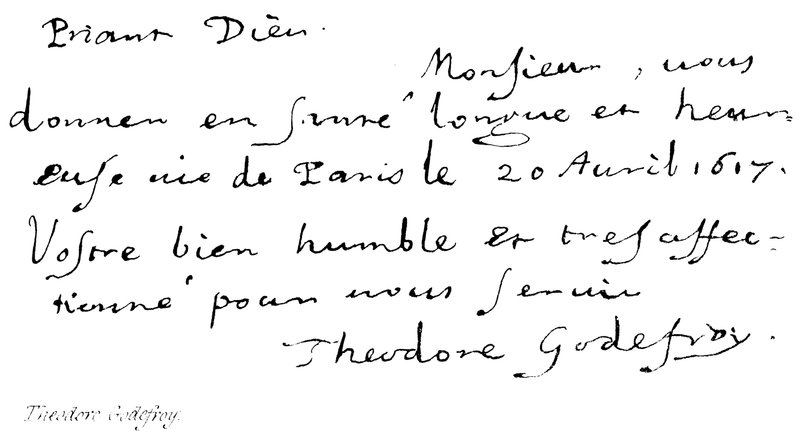 Priant Dieu.
Monsieur, vous
donner en santé longue et heur=
euse vie de Paris le 20 Avril 1617.
Vostre bien humble et tres affec=
tionné pour vous servir
Theodore Godefroy.
Theodore Godefroy.